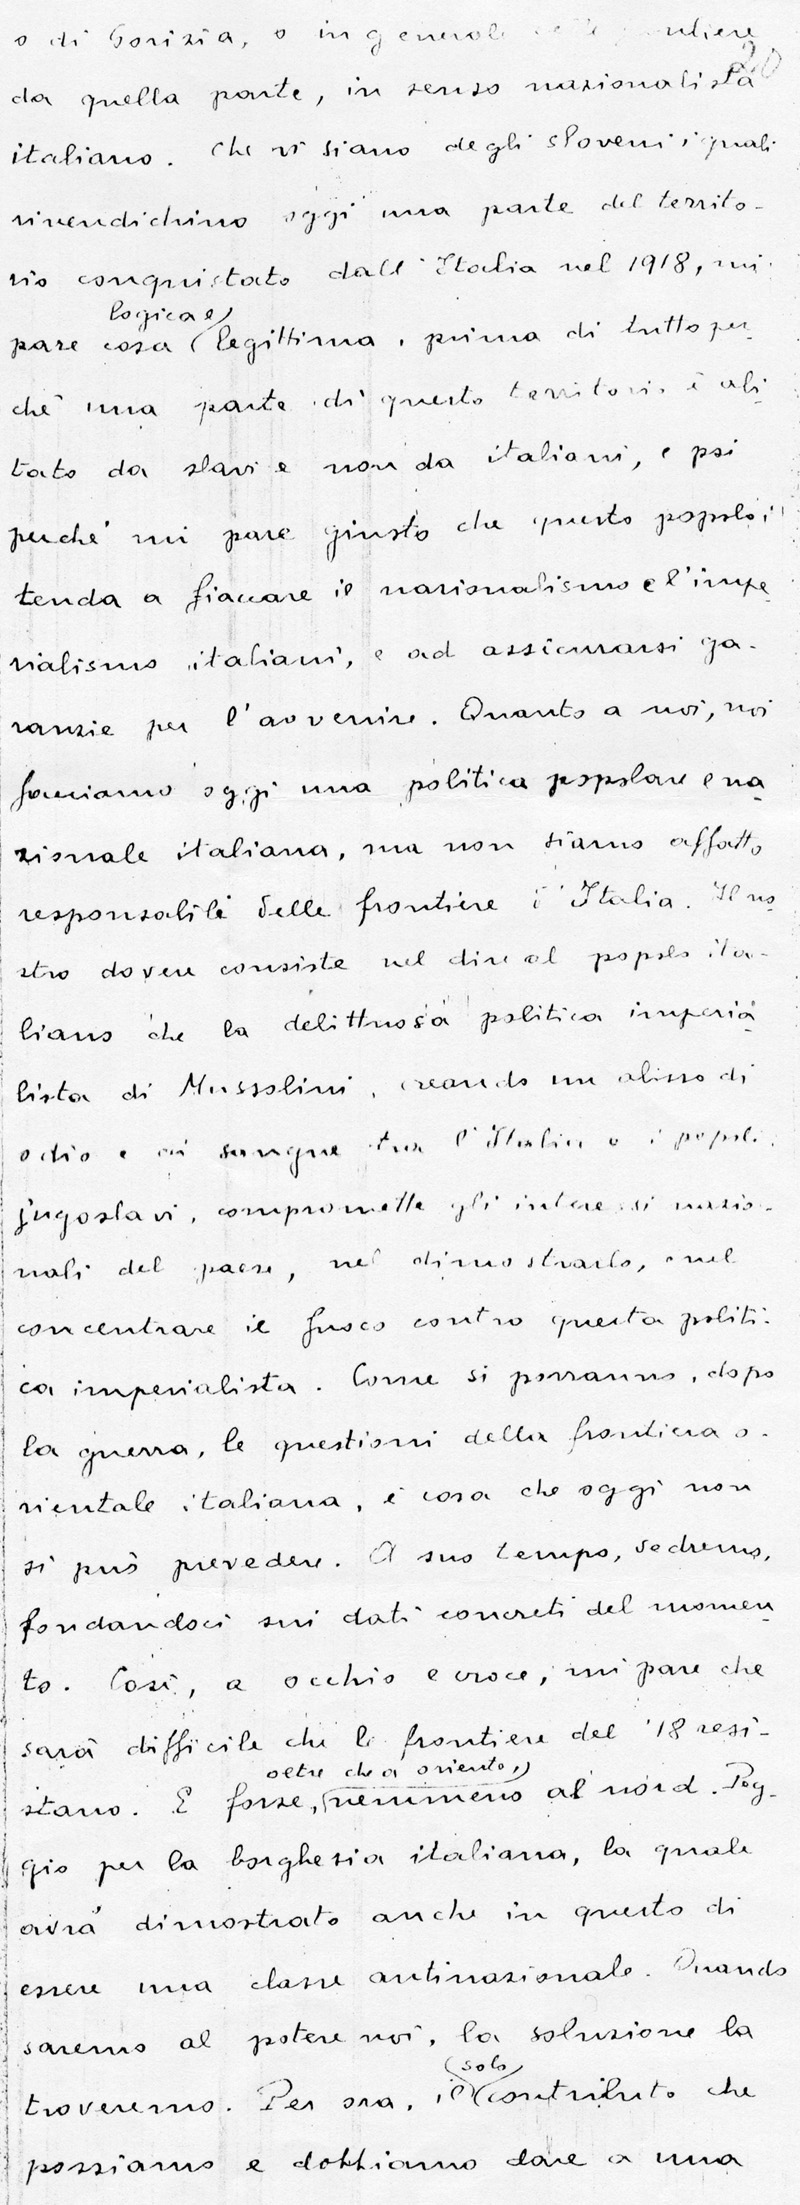 o di Gorizia, o in generale delle frontiere
20
da quella parte, in senso nazionalista
italiano. Che vi siano degli sloveni i quali
rivendichino oggi una parte del territo-
rio conquistato dall'Italia nel 1918, mi
logica e
pare cosa legittima, prima di tutto per
chè una parte di questo territorio è abi
tato da slavi e non da italiani, e poi
perchè mi pare giusto che questo popolo i
tenda a fiaccare il nazionalismo e l'impe
rialismo italiani, e ad assicurarsi ga-
ranzie per l'avvenire. Quanto a noi, noi
facciamo oggi una politica popolare e na
zionale italiana, ma non siamo affatto
responsabili delle frontiere d'Italia. Il no
stro dovere consiste nel dire al popolo ita-
liano che la delittuosa politica imperia
lista di Mussolini, creando un abisso di
odio e di sangue tra l'Italia e i popoli
jugoslavi, compromette gli interessi nazio-
nali del paese, nel dimostrarlo, e nel
concentrare il fuoco contro questa politi-
ca imperialista. Come si porranno, dopo
la guerra, le questioni della frontiera o-
rientale italiana, è cosa che oggi non
si può prevedere. A suo tempo, vedremo,
fondandoci sui dati concreti del momen
to. Così, a occhio e croce, mi pare che
sarà difficile che le frontiere del '18 resi-
oltre che a oriente,
stano. E forse, nemmeno al nord. Peg-
gio per la borghesia italiana, la quale
avrà dimostrato anche in questo di
essere una classe antinazionale. Quando
saremo al potere noi, la soluzione la
solo
troveremo. Per ora, il contributo che
possiamo e dobbiamo dare a una